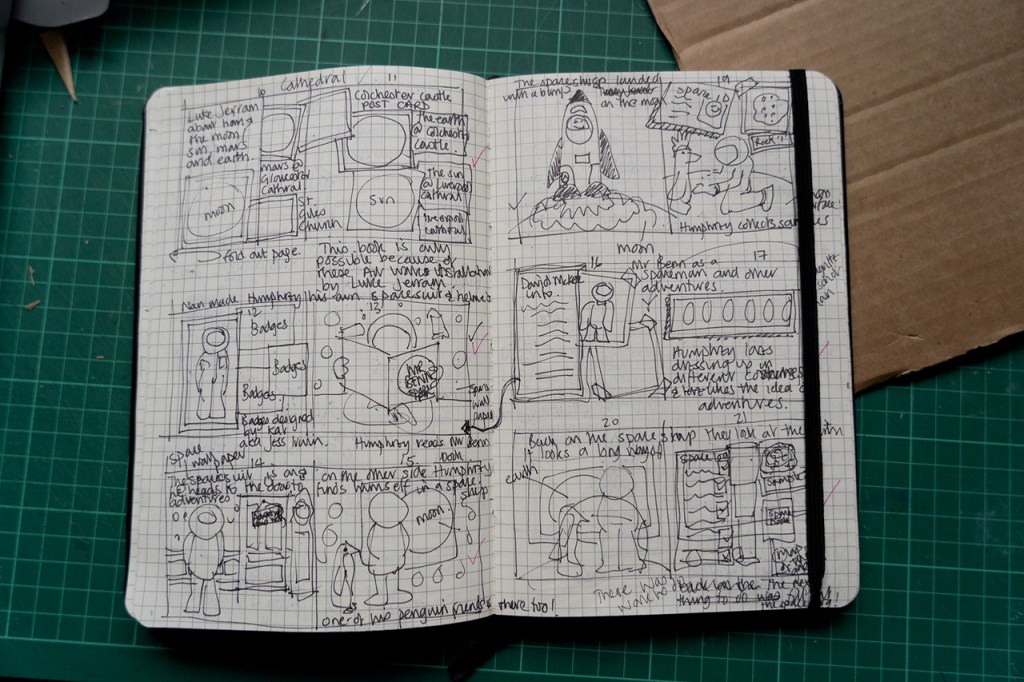 Cathedral
11
10
Luke Jerram
about how
the moon,
sun, mars
and earth.
moon
mars @
Gloucester
Cathral
St.
Giles
Church
Colchester castle
POST CARD
The earth
@ Colchester
castle.
Sun
The sun
@ Liverpool
Cathral
Liverpool
Cathral
fold out page.
This book is only
possible because of
these Art works installation
by Luke Jerram.
Nan made Humphrey his own spacesuit & helmet
12
13
Badges
Badges
Badges
Badges designed
by Kat J
aka Jess
MR
BENN
Space
wall
paper
Space
wall paper
Humphrey reads Mr Benn
Book
14
The spacesuit is on &
he heads to the door to
adventures
15
on the other side Humphrey
finds himself in a space
ship
moon
one of his penguin friends is there too!
The spaceship landed
with a bump
on the moon
19
space
Rock
Humphrey collects samples
moon
16
17
David McKee
info
Mr Benn as a
spaceman and other
adventures.
Humphrey loves
dressing up in
different
& likes the idea of
adventures.
20
21
Back on the space ship they look at the earth
it looks a long way off
earth
space log
sample
There was
work to do
Back
thing to do was